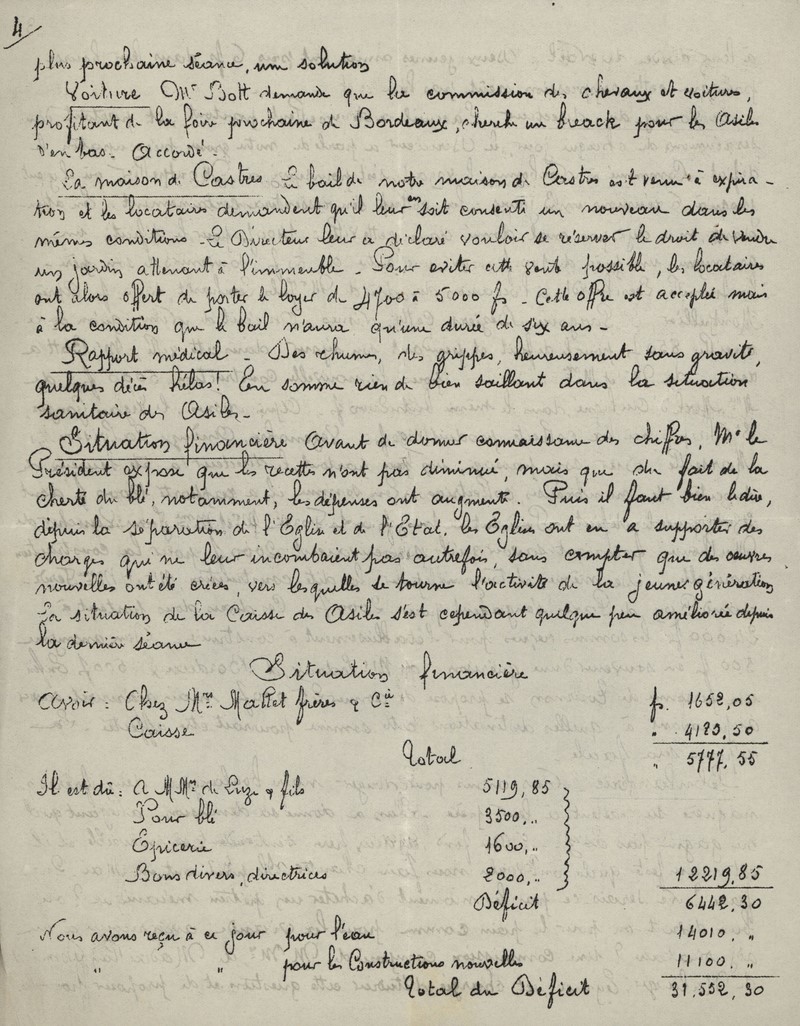 4
plus prochaine séance, une solution
Voiture Mr Bott demande que la commission des chevaux et voitures,
profitant de la foire prochaine de Bordeaux, cherche un break pour les Asiles
d'en bas. Accordé.
La maison de Castres Le bail de notre maison de Castres est venu à expira-
tion et les locataires demandent qu'il leur en soit consenti un nouveau dans les
mêmes conditions. Le Directeur leur a déclaré vouloir se réserver le droit de vendre
un jardin attenant à l'immeuble. Pour éviter cette vente possible, les locataires
ont alors offert de porter le loyer de 4700 à 5000 f. Cette offre est acceptée mais
à la condition que le bail n'aura qu'une durée de six ans.
Rapport médical - Des rhumes, des grippes, heureusement sans gravité,
quelques décès hélas! En somme rien de bien saillant dans la situation
sanitaire des Asiles.
Situation financière Avant de donner connaissance des chiffres, Mr le
Président expose que les recettes n'ont pas diminué, mais que du fait de la
cherté du blé, notamment, les dépenses ont augmenté. Puis il faut bien le dire,
depuis la séparation de l'Eglise et de l'Etat, les Eglises ont eu a supporter des
charges qui ne leur incombaient pas autrefois, sans compter que des oeuvres
nouvelles ont été créées, vers lesquelles se tourne l'activité de la jeune génération
La situation de la Caisse des Asiles s'est cependant quelque peu améliorée depuis
la dernière séance
Situation financière
Avoir: Chez Mrs Mallet frères & Cie f. 1652,05
Caisse " 4125,50
Total " 5777,55
Il est dû: A MMrs de Luze & fils 5119,85
Pour blé 3500,"
Epicerie 1600,"
Bons divers, directrices 2000,"  12219,85
Déficit 6442,30
Nous avons reçu à ce jour pour l'eau 14010,"
" " pour les Constructions nouvelles 11100,"
Total du Déficit 31.552,30